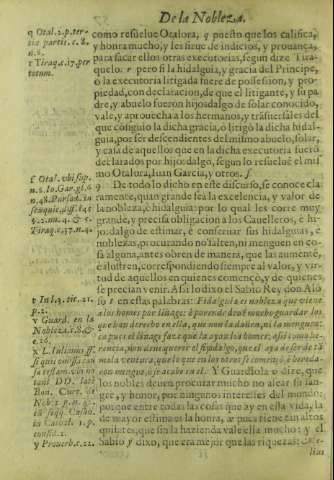 De la Nobleza.
q Otal. 2. p. ter-
tiæ partis. c. 8.
n. 8.
r Tiraq. c. 17. per
totum.
como resuelue Otalora, q puesto que los califica,
y honra mucho, y les sirue de indicios, y prouança,
para sacar ellos otras executorias, segun dize Tira-
quelo: r pero si la hidalguia, y gracia del Principe,
o la executoria litigada fuere de possession, y pro-
piedad, con declaracion, de que el litigante, y su pa-
dre, y abuelo fueron hijosdalgo de solar conocido,
vale, y aprouecha a los hermanos, y trāsuersales del
que cōsiguio la dicha gracia, o litigò la dicha hidal-
guia, por ser descendientes del mismo abuelo, solar,
y casa de aquellos que en la dicha executoria fuerō
declarados por hijosdalgo, segun lo resuelue el mis-
mo Otalora, Iuan Garcia, y otros. s
s Otal. vbi sup.
n. 8. Io. Gar. gl. 6.
n. 48.
Tiraq. c. 37. n. 4.
9 De todo lo dicho en este discurso, se conoce cla-
ramente, quan grande sea la excelencia, y valor de
la nobleza, è hidalguia: por lo qual les corre muy
grande, y precisa obligacion a los Caualleros, è hi-
josdalgo de estimar, è conseruar sus hidalguias, è
noblezas, procurando no falten, ni menguen en co-
sa alguna, antes obren de manera, que las aumentē,
è ilustren, correspondiendo siempre al valor, y vir-
tud de aquellos en quienes començò, y de quienes
se precian venir. Assi lo dixo el Sabio Rey don Alō
so t en estas palabras: Fidalguia es nobleza que viene
a los homes por linage: è porende deuē mucho guardar los
que han derecho en ella, que non la dañen, ni la menguen:
ca pues el linage faze que la ayan los homes, assi como he-
rencia,
con mengua, è se acabe en el. Y Guardiola v dize, que
los nobles deuen procurar mucho no alear su san-
gre, y honor, por ningunos interesses del mundo:
porque entre todas las cosas que ay en esta vida, la
de mayor estima es la honra, pues tiene tan altos
quilates, que sin la hazienda vale ella mucho: y el
Sabio y dixo, que era mejor que las riquezas:
v Guard. en la
Nobleza.
y Prouerb. c. 22.